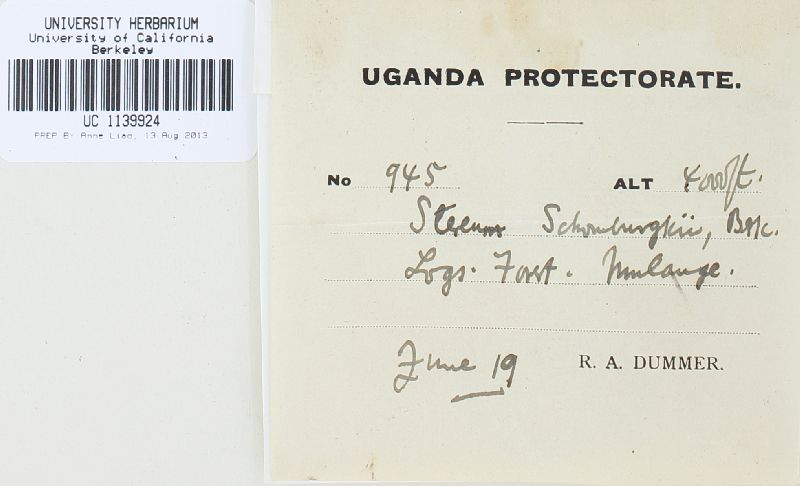 UNIVERSITY HERBARIUM
University of California
Berkeley
UC 1139924
PREP BY Anne Liao, 13 Aug 2013
UGANDA PROTECTORATE.
No 945 ALT 4000ft.
Stereum Schomburgkii, Berk.
Logs. Forest. Mulange.
June 19
R. A. DUMMER.